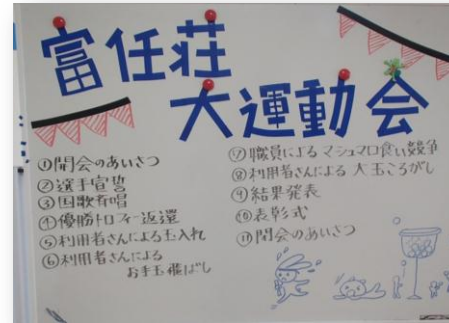 富任荘
大運動会
①開会のあいさつ
②選手宣誓
③国歌斉唱
④優勝トロフィー返還
⑤利用者さんによる玉入れ
⑥利用者さんによる
お手玉飛ばし
⑦職員によるマシュマロ食い競争
⑧利用者さんによる大玉ころがし
⑨結果発表
⑩表彰式
⑪閉会のあいさつ